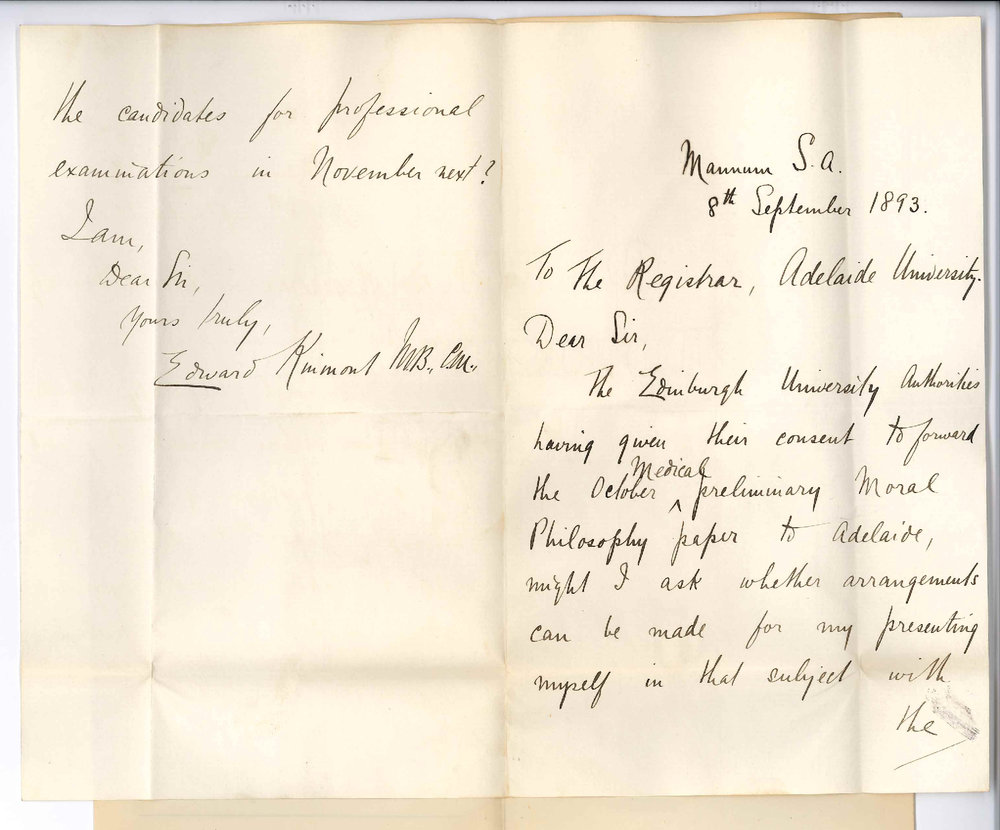 Mannum S.A.
8th September 1893.
To The Registrar, Adelaide University.
Dear Sir,
The Edinburgh University Authorities
having given their consent to forward
the October Medical preliminary Moral
Philosophy paper to Adelaide,
might I ask whether arrangements
can be made for my presenting
myself in that subject with
the
the candidates for professional
examinations in November next?
I am,
Dear Sir,
Yours truly,
Edward Kinmont M.B., C.M.,